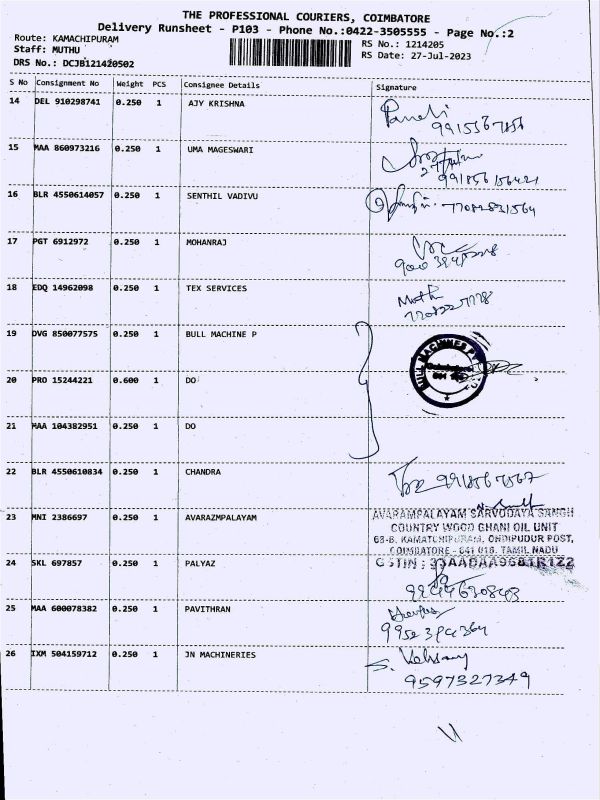 THE PROFESSIONAL COURIERS, COIMBATORE
Delivery Runsheet - P103 - Phone No.:0422-3505555 - Page No.:2
Route: KAMACHIPURAM
Staff: MUTHU
DRS No.: DCJB121420502
RS No.: 1214205
RS Date: 27-Jul-2023
S No Consignment No Weight PCS Consignee Details Signature
14 DEL 910298741 0.250 1 AJY KRISHNA
15 MAA 860973216 0.250 1 UMA MAGESWARI
16 BLR 4550614057 0.250 1 SENTHIL VADIVU
17 PGT 6912972 0.250 1 MOHANRAJ
18 EDQ 14962098 0.250 1 TEX SERVICES
19 DVG 850077575 0.250 1 BULL MACHINE P
20 PRO 15244221 0.600 1 DO
21 MAA 104382951 0.250 1 DO
22 BLR 4550610834 0.250 1 CHANDRA
23 MNI 2386697 0.250 1 AVARAZMPALAYAM
AVARAMPALAYAM SARVODAYA SANGH
COUNTRY WOOD GHANI OIL UNIT
63-B, KAMATCHIPURAM, ONDIPUDUR POST,
COIMBATORE - 641 016. TAMIL NADU
24 SKL 697857 0.250 1 PALYAZ
GSTIN : 33AADAA9681R1Z2
25 MAA 600078382 0.250 1 PAVITHRAN
26 IXM 504159712 0.250 1 JN MACHINERIES
9597327349